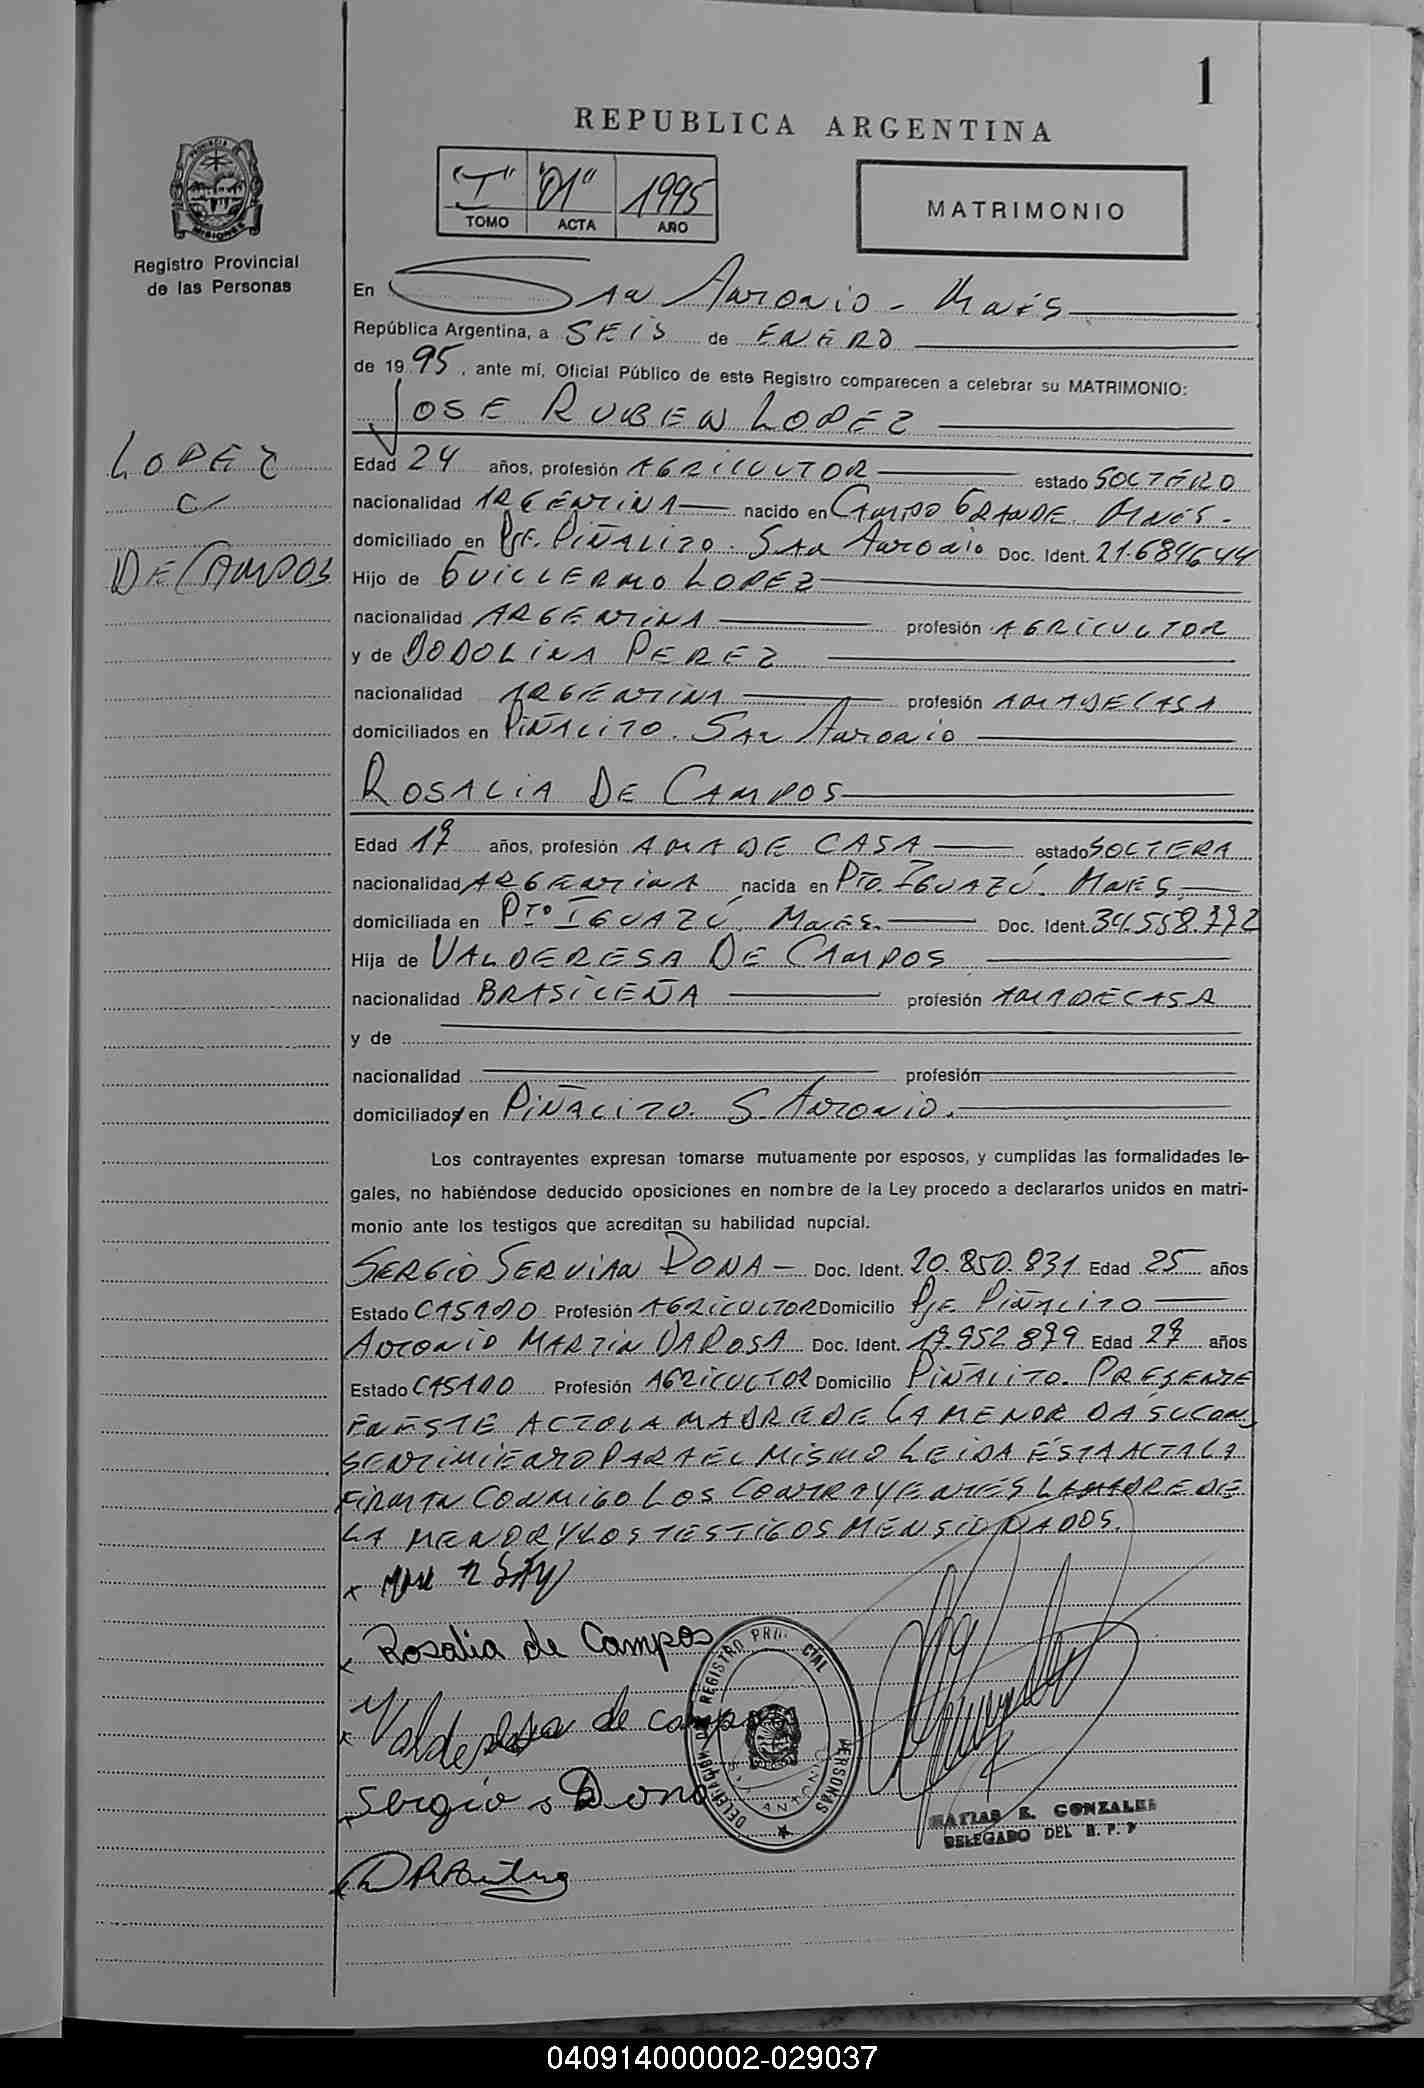 1
REPUBLICA ARGENTINA
"I" "01" 1995
TOMO ACTA AÑO
MATRIMONIO
PROVINCIA DE MISIONES
Registro Provincial
de las Personas
En San Antonio - Mnes
República Argentina, a SEIS de ENERO
de 1995, ante mí, Oficial Público de este Registro comparecen a celebrar su MATRIMONIO:
JOSE RUBEN LOPEZ
LOPEZ
C/
DE CAMPOS
Edad 24 años, profesión AGRICULTOR estado SOLTERO
nacionalidad ARGENTINA nacido en CAMPO GRANDE. Mnes.-
domiciliado en Pje. PIÑALITO. San Antonio Doc. Ident. 21.684644
Hijo de GUILLERMO LOPEZ
nacionalidad ARGENTINA profesión AGRICULTOR
y de DODOLINA PEREZ
nacionalidad ARGENTINA profesión AMA DE CASA
domiciliados en PIÑALITO. San Antonio
ROSALIA DE CAMPOS
Edad 17 años, profesión AMA DE CASA estado SOLTERA
nacionalidad ARGENTINA nacida en Pto. IGUAZÚ. Mnes
domiciliada en Pto IGUAZÚ. Mnes. Doc. Ident. 34.558.772
Hija de VALDERESA DE CAMPOS
nacionalidad BRASILEÑA profesión AMA DE CASA
y de
nacionalidad profesión
domiciliados en PIÑALITO. S. Antonio.
Los contrayentes expresan tomarse mutuamente por esposos, y cumplidas las formalidades le-
gales, no habiéndose deducido oposiciones en nombre de la Ley procedo a declararlos unidos en matri-
monio ante los testigos que acreditan su habilidad nupcial.
SERGIO SERVIAN DONA - Doc. Ident. 20.850.831 Edad 25 años
Estado CASADO Profesión AGRICULTOR Domicilio Pje PIÑALITO
ANTONIO MARTIN DA ROSA Doc. Ident. 17.952.879 Edad 27 años
Estado CASADO Profesión AGRICULTOR Domicilio PIÑALITO. PRESENTE
EN ESTE ACTO LA MADRE DE LA MENOR DA SU CON
SENTIMIENTO PARA EL MISMO LEIDA ESTA ACTA LA
FIRMAN CONMIGO LOS CONTRAYENTES LA MADRE DE
LA MENOR Y LOS TESTIGOS MENSIONADOS.
x
x Rosalia de Campos
x Valderesa de campos
x Sergio s Dona
x
DELEGACION REGISTRO PROVINCIAL PERSONAS
SAN ANTONIO
MATIAS E. GONZALEZ
DELEGADO DEL R. P. P
040914000002-029037